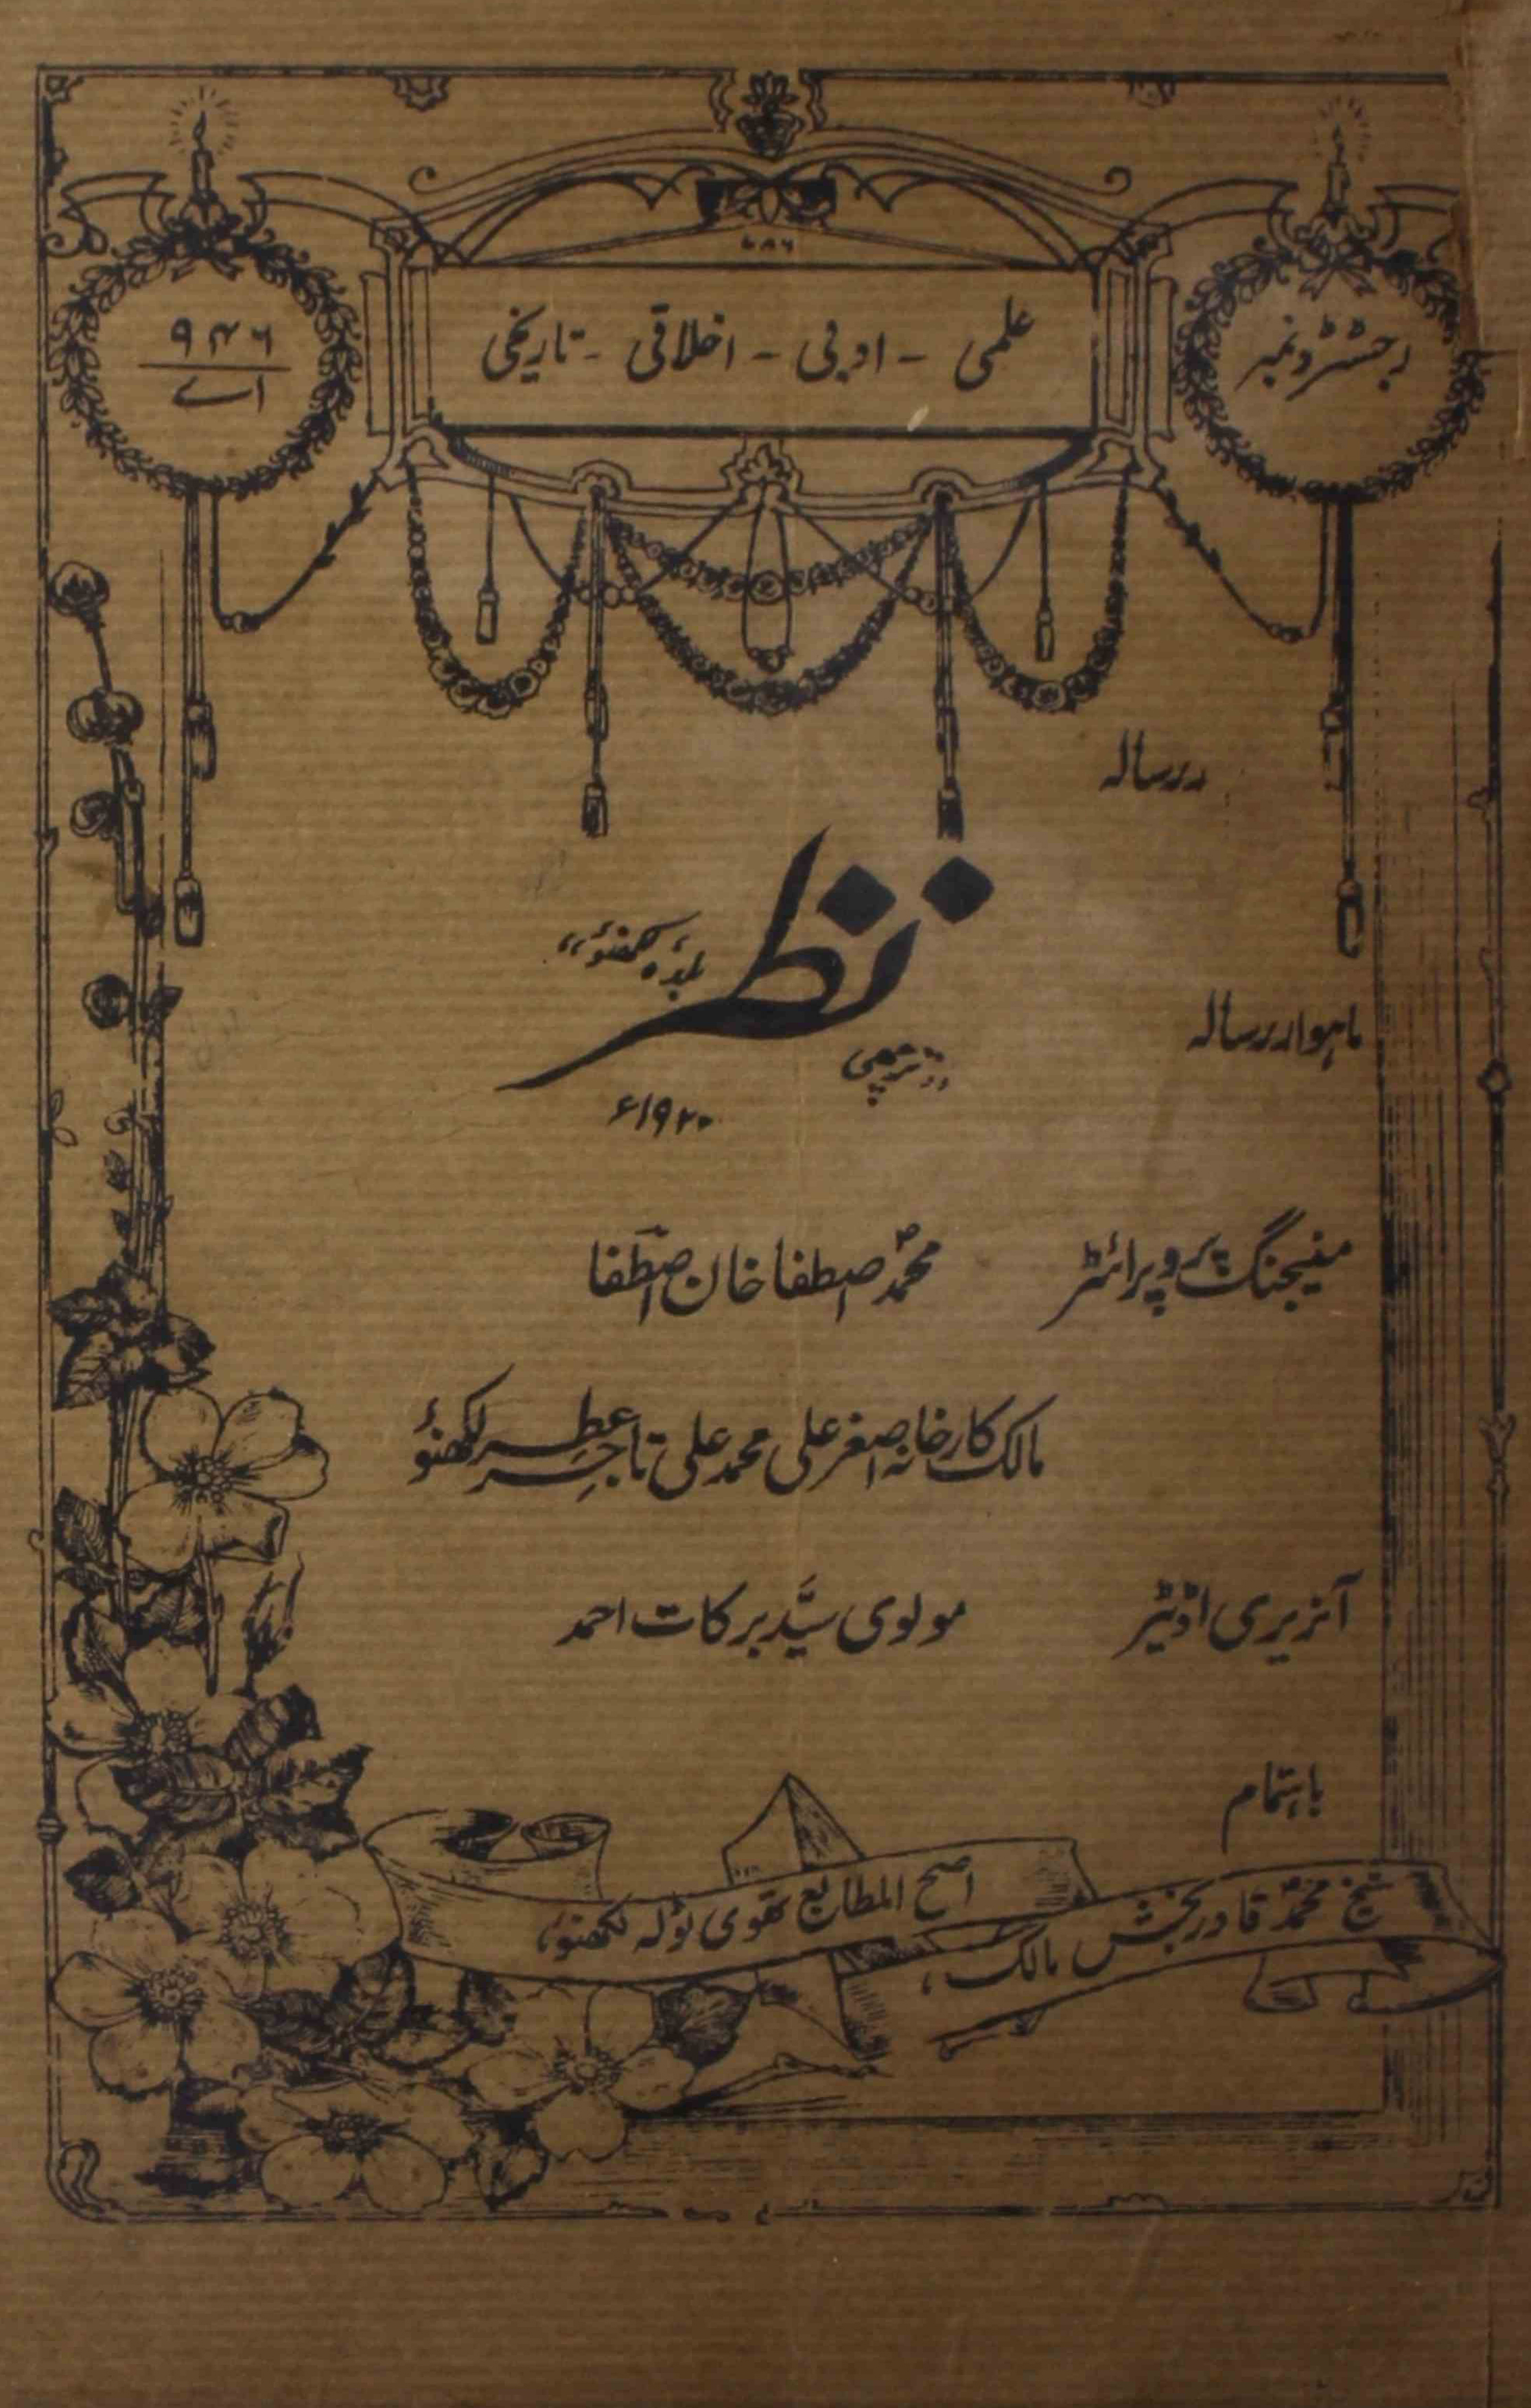 ۷۸۶
علمی - ادبی - اخلاقی - تاریخی
رجسٹرڈ نمبر
۹۴۶
اے
رسالہ
نظر
بلدۂ لکھنؤ
ماہوار رسالہ
۱۹۲۰ء
منیجنگ پروپرائٹر محمد اصطفا خان اصطفا
مالک کارخانہ اصغر علی محمد علی تاجر عطر لکھنؤ
آنریری اڈیٹر مولوی سیّد برکات احمد
باہتمام
شیخ محمد قادر بخش مالک،
اصح المطابع نقوی ٹولہ لکھنؤ،